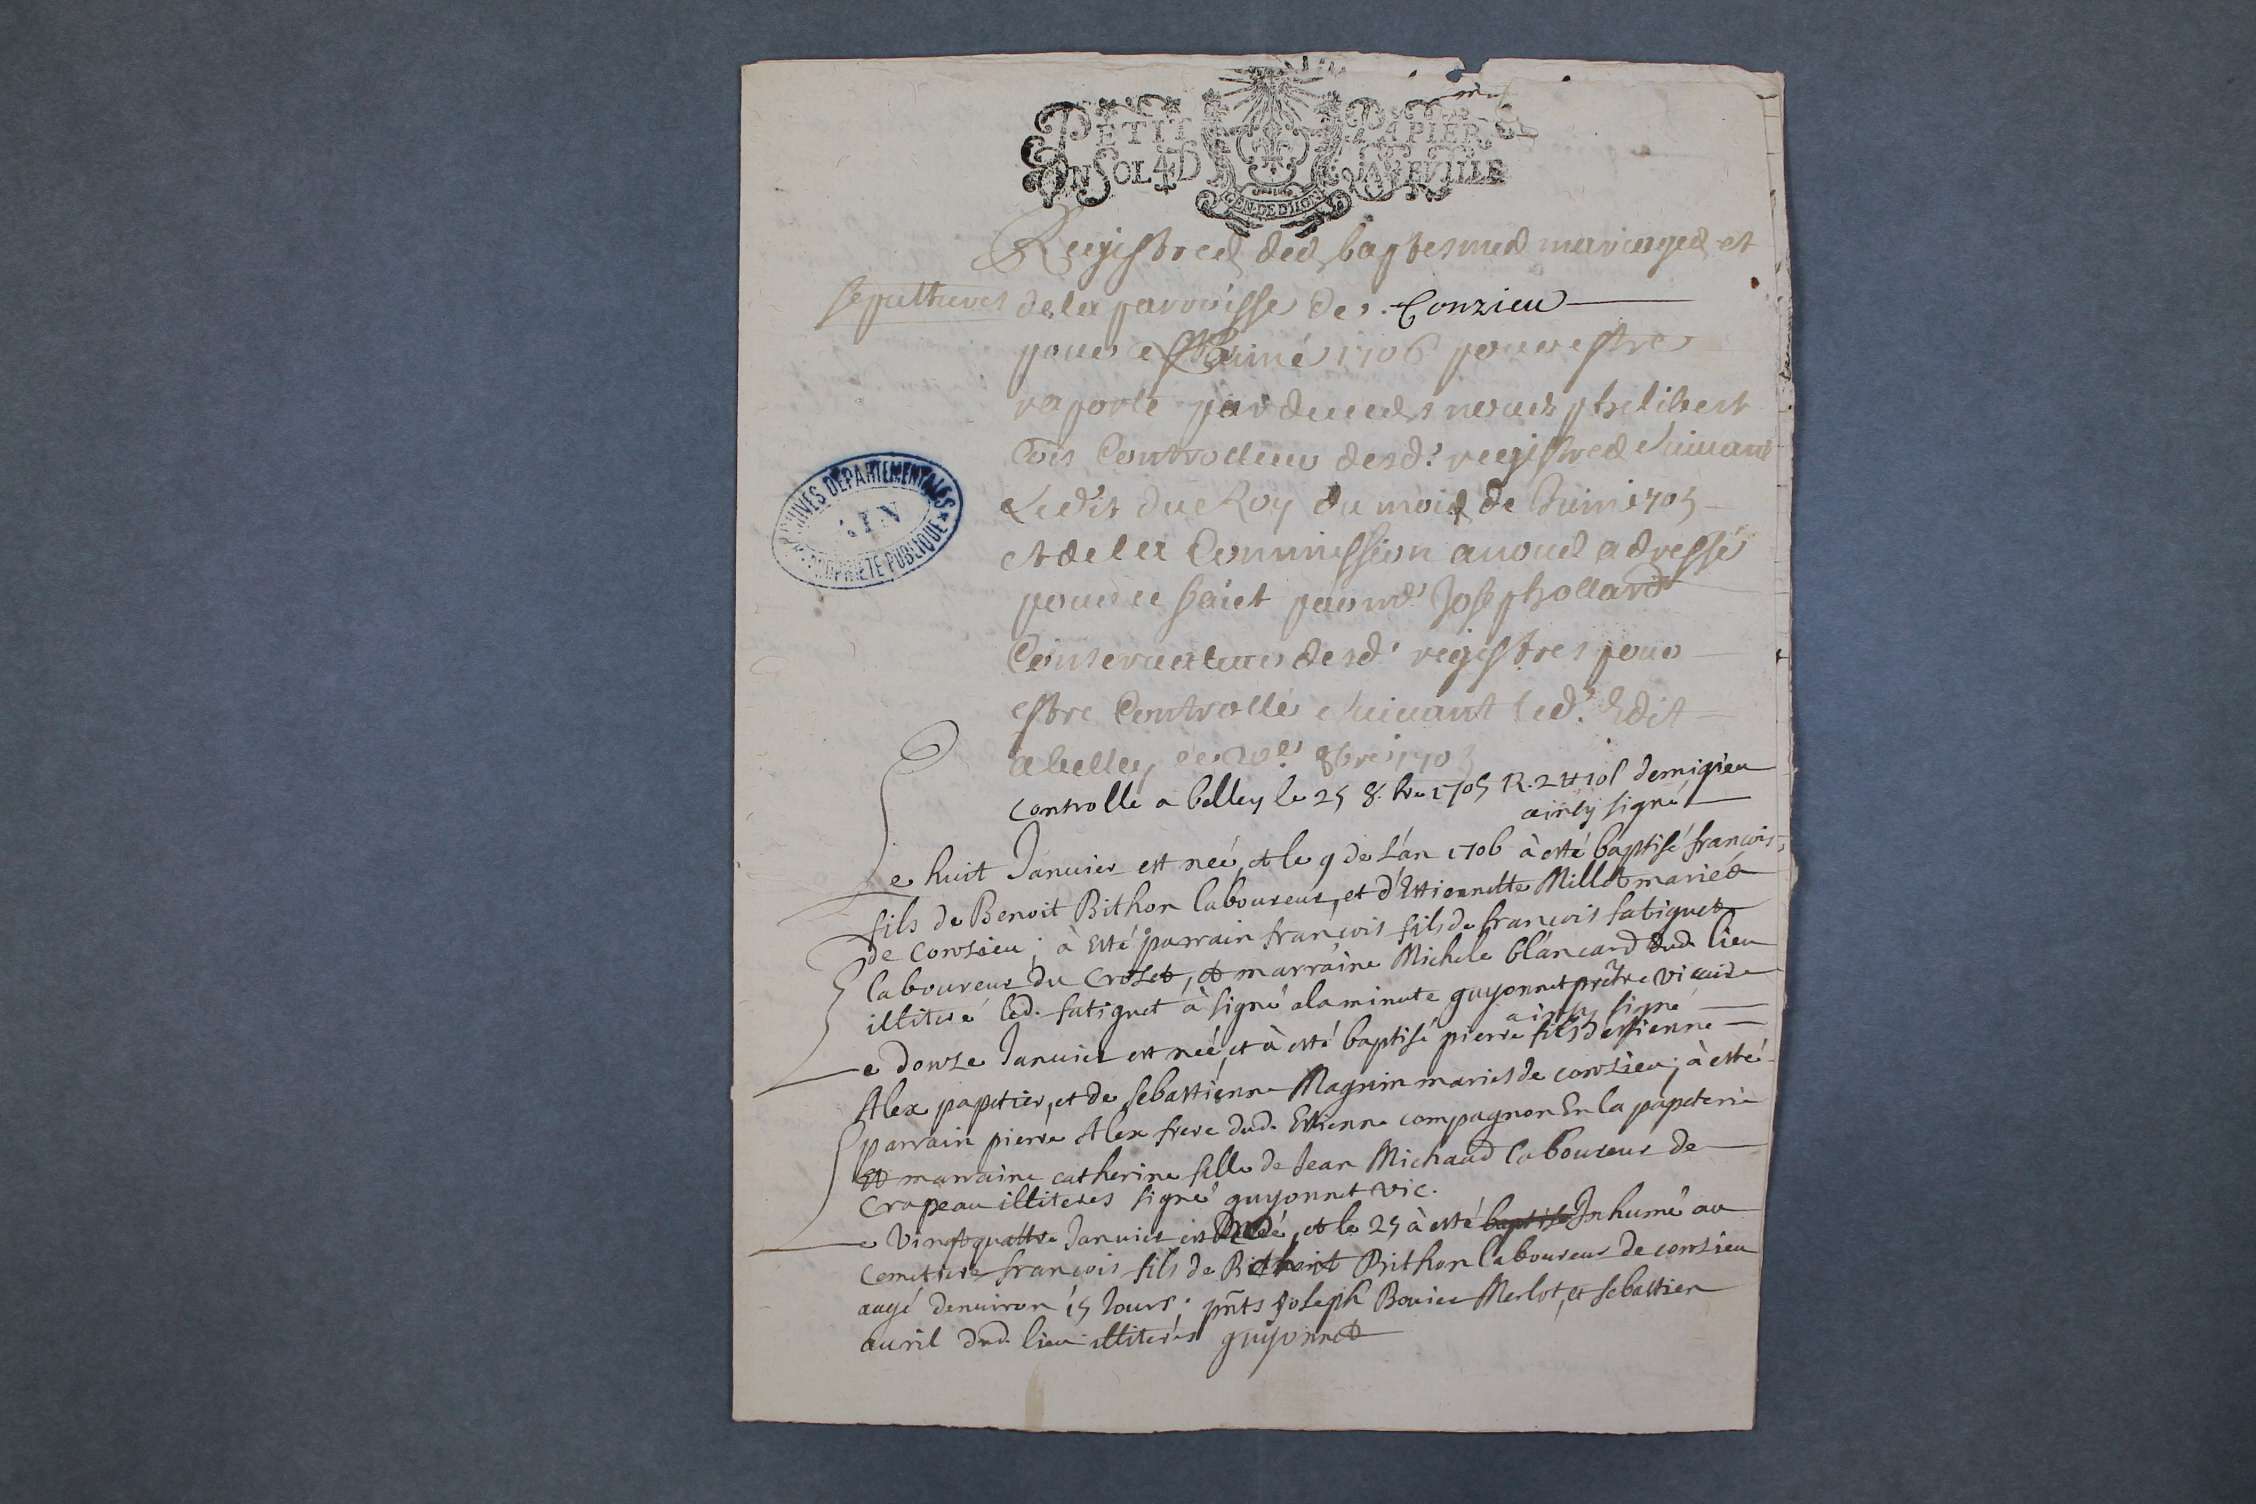 PETIT PAPIER
UN SOL 4D LA FEUILLE
GEN DE DIION
Regisstres des baptesmes mariages et
sepultures de la parroisse de Conzieu
pour l'année 1706 pour estre
raporté par devers nous philibert
Controlleur desd. registres suivant
L'edit du Roy du mois de Juin 1705
et de la Commission a nous adressé
pour ce faict par md. Joseph ollard
Conservateur desd. registres pour
estre Controllé suivant led. Edit
a belley 8bre 1705
Controllé a belley le 25 8.bre 1705 R. 2 # 10s demigieu
ainsy signé
ARCHIVES DEPARTEMENTALES
AIN
PROPRIETE PUBLIQUE
Le huit Janvier est neé, et le 9 de L'an 1706 à esté baptisé françois
fils de Benoit Bithon laboureur, et d'Estiennette Millet mariés
de Conzieu; à Esté parrain françois fils de françois fatiguet
laboureur du Croset, et marraine Michele blancard dud. lieu
illiteré led. fatiguet à signé a la minute guyonnet prêtre vicaire
ainsy signé
Le douze Janvier est neé, et à esté baptisé pierre fils d'estienne
Alex papetier, et de sebastienne Magnin mariés de Conzieu; à esté
parrain pierre Alex frere dud. Estienne compagnon En la papeterie
Et marraine catherine fille de Jean Michaud laboureur de
Crapeau illiteres signé guyonnet vic.
Le vingt quattre Janvier est Decedé, et le 25 à esté baptisé Inhumé au
Cemettiere françois fils de Bithon laboureur de conzieu
augé d'environ 15 Jours; pnts Joseph Bovier Merlot, et sebastien
auril dud. lieu illiterés guyonnet